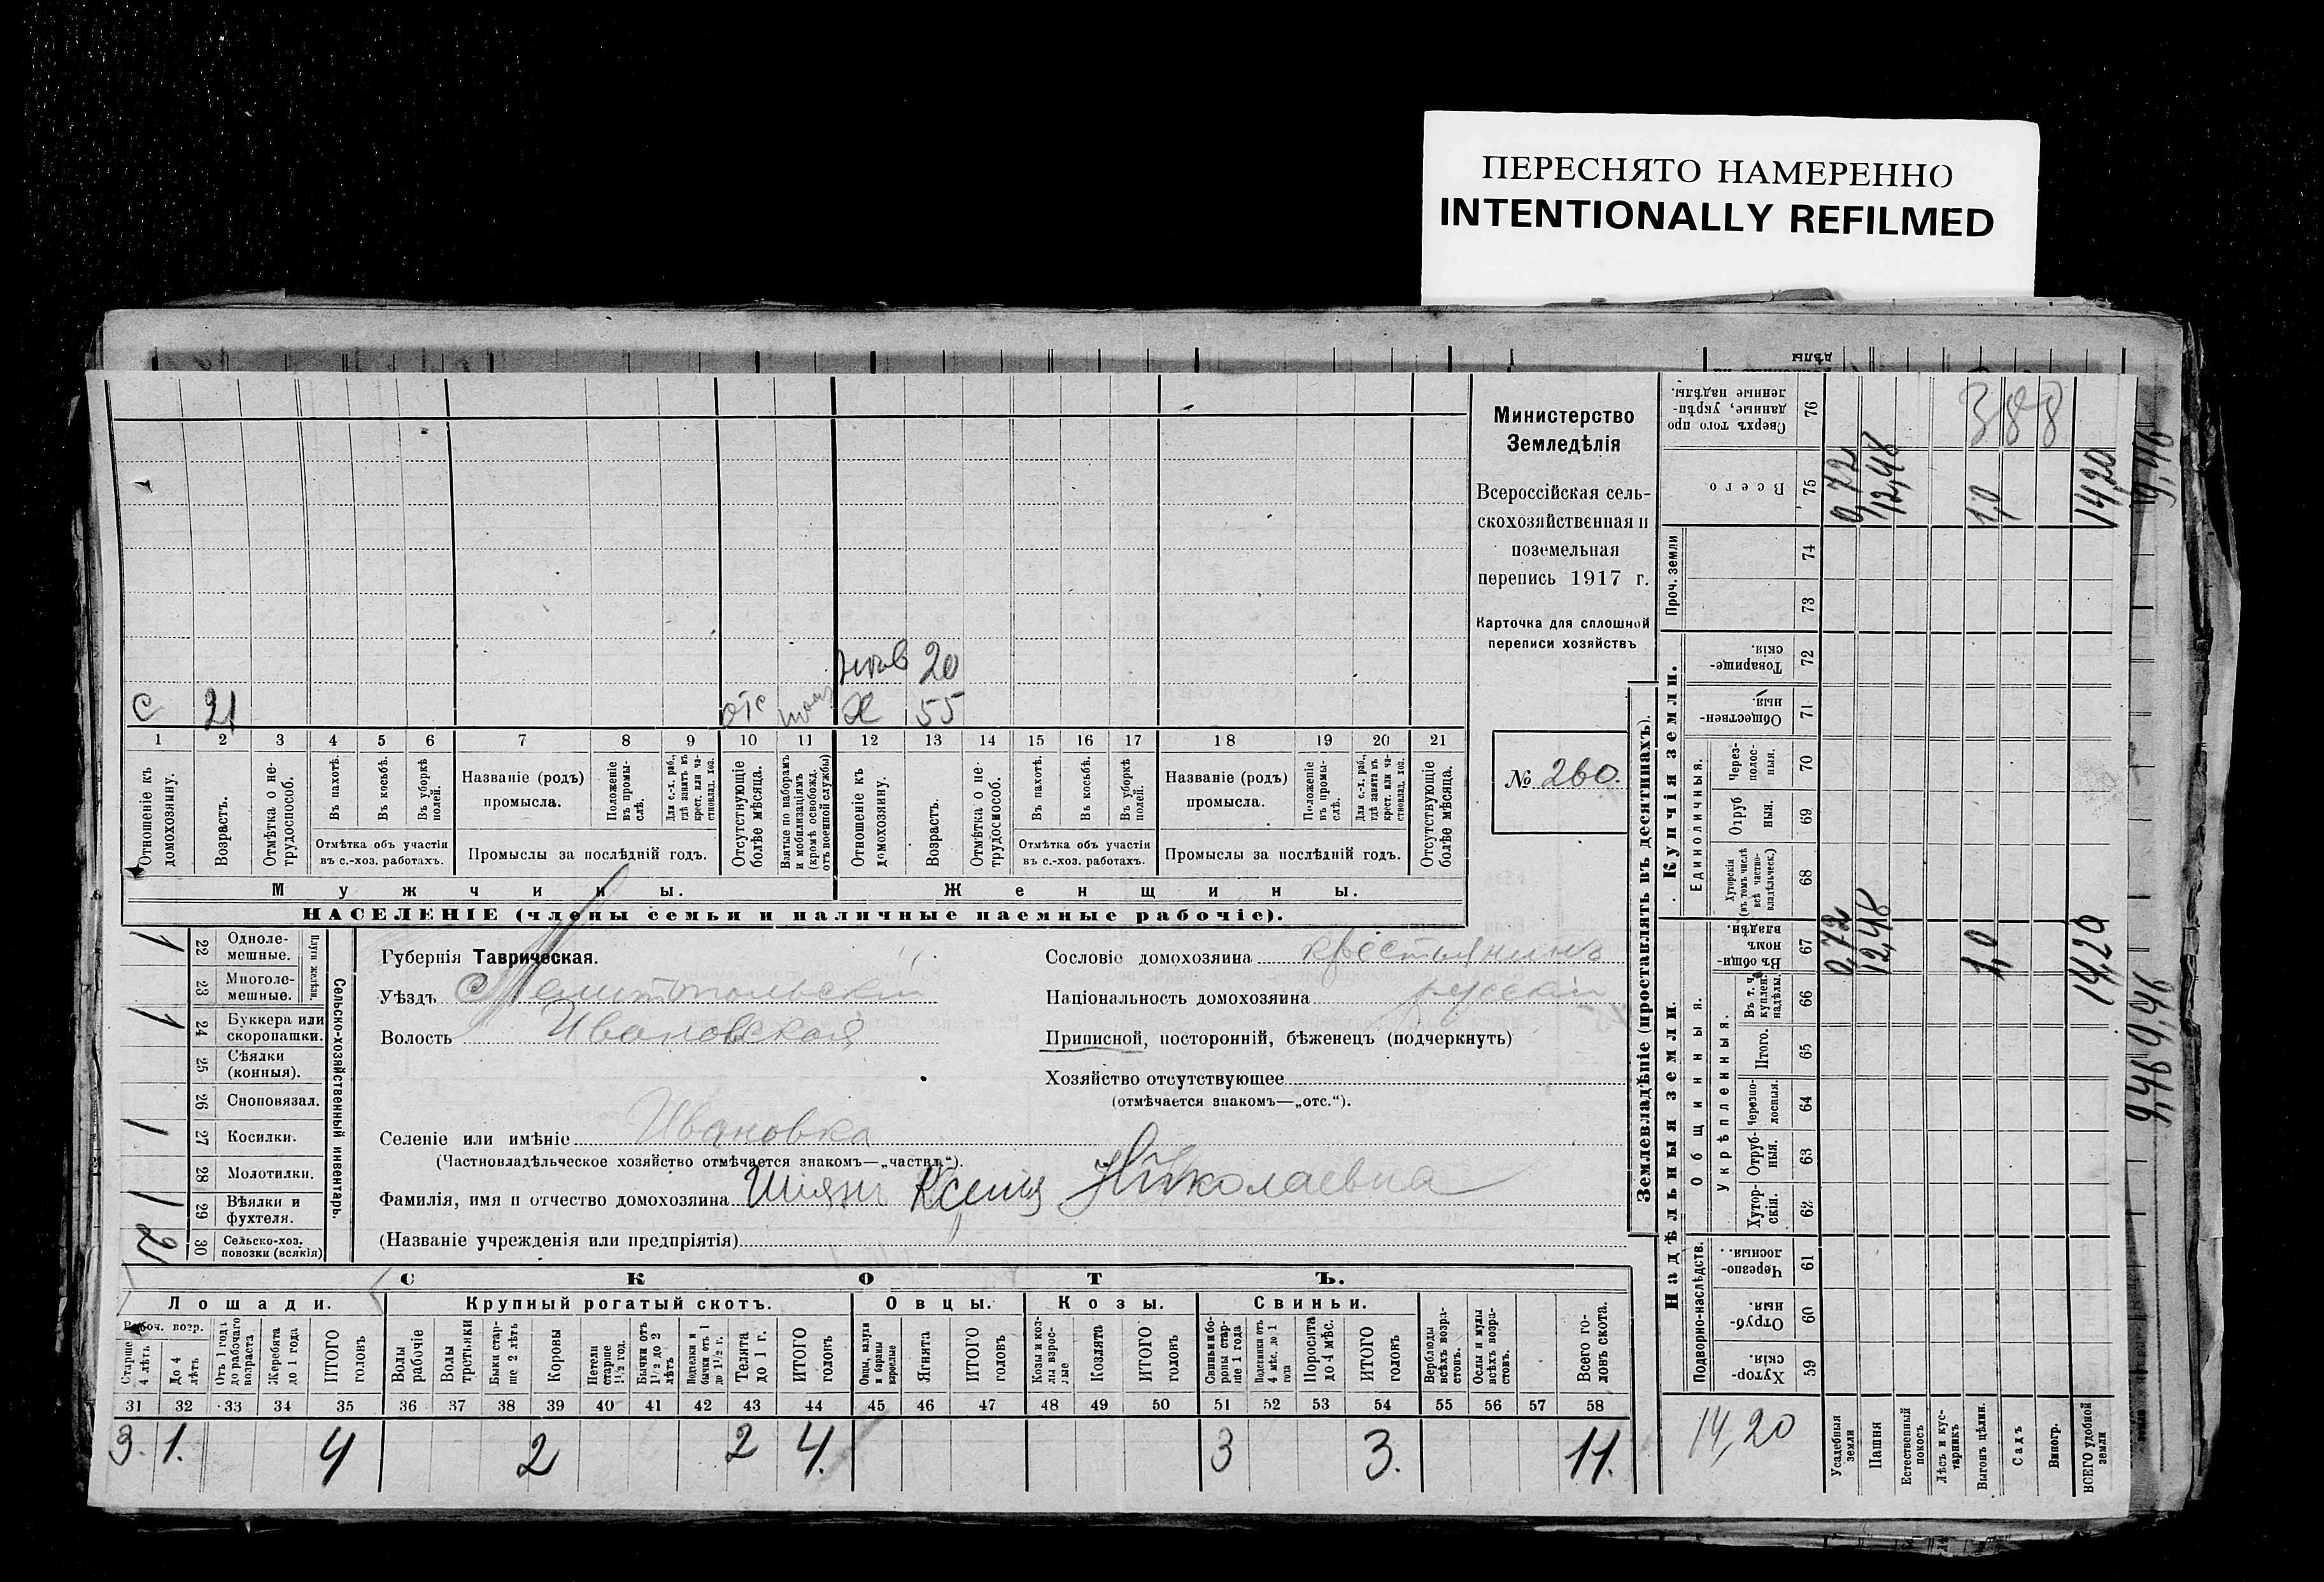 ПЕРЕСНЯТО НАМЕРЕННО
INTENTIONALLY REFILMED
Министерство
Земледѣлія
Всероссійская сель-
скохозяйственная и
поземельная
перепись 1917 г.
Карточка для сплошной
переписи хозяйствъ
№ 260.
20
с 21 отс Ж 55
1 2 3 4 5 6 7 8 9 10 11 12 13 14 15 16 17 18 19 20 21
Отношеніе къ домохозяину.
Возрастъ.
Отмѣтка о не-трудоспособ.
Въ пахотѣ.
Въ косьбѣ.
Въ уборкѣ полей.
Отмѣтка объ участіи
въ с.-хоз. работахъ.
Названіе (родъ)
промысла.
Положеніе въ промы-слѣ.
Для с.-х. раб., гдѣ занятъ въ крест. или ча-стновлад. хоз.
Промыслы за послѣдній годъ.
Отсутствующіе болѣе мѣсяца.
Взятые по наборамъ и мобилизаціямъ (кромѣ освобожд. отъ военной службы)
Отношеніе къ домохозяину.
Возрастъ.
Отмѣтка о не-трудоспособ.
Въ пахотѣ.
Въ косьбѣ.
Въ уборкѣ полей.
Отмѣтка объ участіи
въ с.-хоз. работахъ.
Названіе (родъ)
промысла.
Положеніе въ промы-слѣ.
Для с.-х. раб., гдѣ занята въ крест. или ча-стновлад. хоз.
Промыслы за послѣдній годъ.
Отсутствующіе болѣе мѣсяца.
Мужчины. Женщины.
НАСЕЛЕНІЕ (члены семьи и наличные наемные рабочіе).
Сельско-хозяйственный инвентарь.
Плуги желѣзн.
1 22 Одноле-мешные.
23 Многоле-мешные.
1 24 Буккера или скоропашки.
25 Сѣялки (конныя).
26 Сноповязал.
1 27 Косилки.
28 Молотилки.
1 29 Вѣялки и фухтеля.
2 30 Сельско-хоз. повозки (всякія)
Губернія Таврическая.
Уѣздъ Мелитопольскій
Волость Ивановская
Селеніе или имѣніе Ивановка
(Частновладѣльческое хозяйство отмѣчается знакомъ—„частвл“).
Фамилія, имя и отчество домохозяина Шіян Ксенія Николаевна
(Названіе учрежденія или предпріятія)
Сословіе домохозяина крестьянинъ
Національность домохозяина русскій
Приписной, посторонній, бѣженецъ (подчеркнуть)
Хозяйство отсутствующее
(отмѣчается знакомъ—„отс.“).
СКОТЪ.
Лошади. Крупный рогатый скотъ. Овцы. Козы. Свиньи.
Рабоч. возр.
Старше 4 лѣтъ
До 4 лѣтъ
Отъ 1 года до рабочаго возраста
Жеребята до 1 года
ИТОГО головъ
Волы рабочіе
Волы третьяки
Быки стар-ше 2 лѣтъ
Коровы
Нетели старше 1½ год.
Бычки отъ 1½ до 2 лѣтъ
Подтелки и бычки отъ 1 до 1½ г.
Телята до 1 г.
ИТОГО головъ
Овцы, валухи и бараны взрослые
Ягнята
ИТОГО головъ
Козы и коз-лы взрос-лые
Козлята
ИТОГО головъ
Свиньи и бо-ровы стар-ше 1 года
Подсвинки отъ 4 мѣс. до 1 года
Поросята до 4 мѣс.
ИТОГО головъ
Верблюды всѣхъ возра-стовъ.
Ослы и мулы всѣхъ возра-стовъ.
Всего го-ловъ скота.
31 32 33 34 35 36 37 38 39 40 41 42 43 44 45 46 47 48 49 50 51 52 53 54 55 56 57 58
3. 1. 4 2 2 4. 3 3. 11.
Землевладѣніе (проставлять въ десятинахъ).
Надѣльныя земли. Купчія земли. Проч. земли
Подворно-наслѣдств. Общинныя. Укрѣпленныя. Единоличныя.
Хутор-скія. 59
Отруб-ныя. 60
Черезпо-лосныя. 61
Хутор-скія. 62
Отруб-ныя. 63
Черезпо-лосныя. 64
Итого. 65
Въ т. ч. куплен. надѣлы. 66
Въ общин-номъ владѣн. 67
Хуторскія (въ томъ числѣ всѣ частно-владѣльческ.) 68
Отруб ныя. 69
Через-полос-ныя. 70
Обществен-ныя. 71
Товарище-скія. 72
73
74
Всего 75
Сверхъ того про данные, укрѣп-ленные надѣлы. 76
14,20
Усадебныя земли 0,72 0,72
Пашня 12,48 12,48
Естественный покосъ
Лѣсъ и кус-тарникъ
Выгонъ цѣлин. 1,0 1,0
Садъ
Виногр.
ВСЕГО удобной земли 14,20 14,20
388
9,46 9,46
9,46